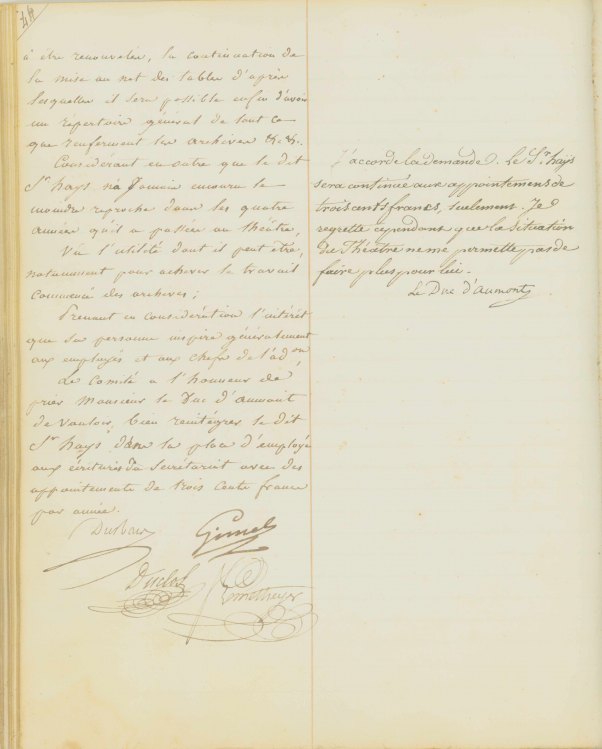 à être renouveler, la continuation de
la mise au net des tables d'après
lesquelles il sera possible enfin d'avoir
un répertoire général de tout ce
que renferment les archives &c. &c.
Considérant en outre que le dit
Sr. hays n'a Jamais encouru le
moindre reproche dans les quatre
années qu'il a passées au théâtre,
Vu l'utilité dont il peut être,
notamment pour achever le travail
commencé des archives;
Prenant en considération l'intérêt
que sa personne inspire généralement
aux employés et aux chefs de l'adon.
Le Comité a l'honneur de
prier Monsieur le Duc d'aumont
de vouloir bien réintégrer le dit
Sr. hays dans la place d'employé
aux écritures du Secrétariat avec des
appointements de trois Cents francs
par année.
Gimel
Duclos
J'accorde la demande. Le Sr. hays
sera continué aux appointemens de
trois cents francs, seulement. Je
regrette cependant que la situation
du Théâtre ne me permette pas de
faire plus pour lui.
Le Duc d'aumont